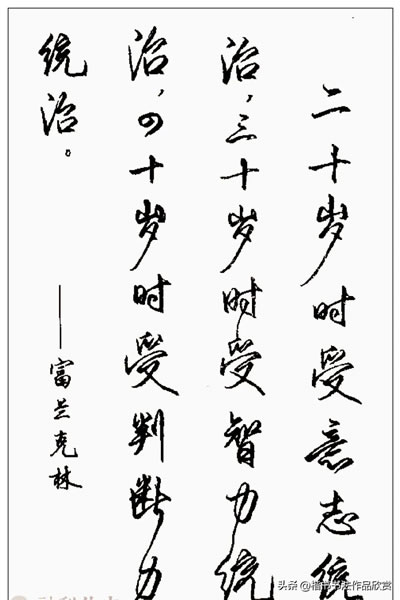 二十岁时受意志统
治，三十岁时受智力统
治，四十岁时受判断力
统治。
——富兰克林
头条@楷书书法作品欣赏